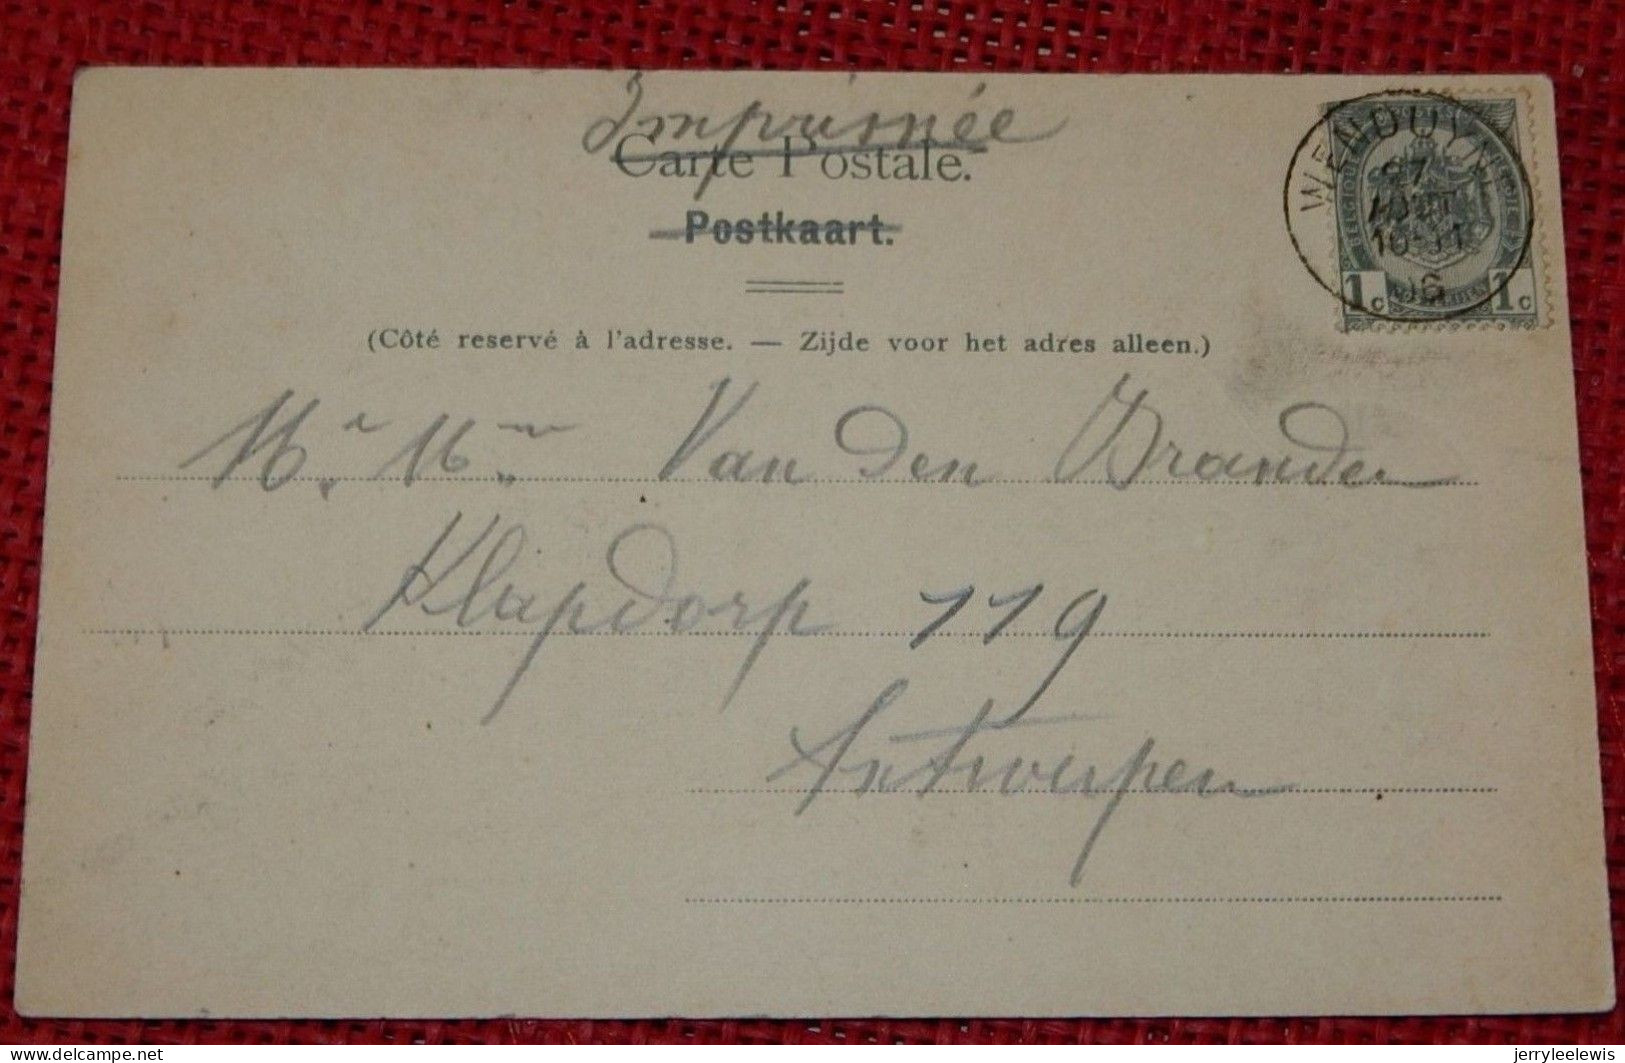 Imprimée
Carte Postale.
Postkaart.
WENDUYNE
27
AOUT
10-11
06
1c 1c
(Côté reservé à l'adresse. — Zijde voor het adres alleen.)
Mr. Mm. Van den Branden
Klapdorp 119
Antwerpen
delcampe.net
jerryleelewis